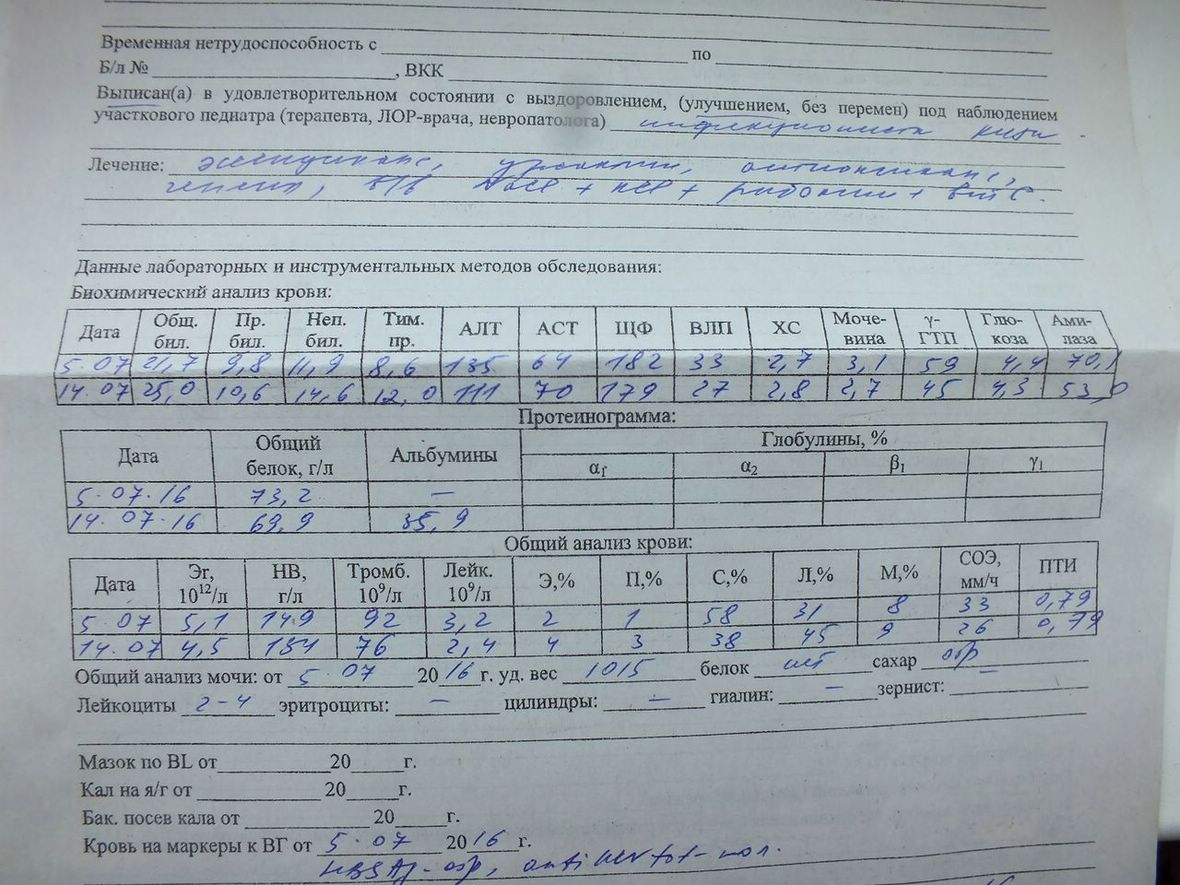 Временная нетрудоспособность с по
Б/л № , ВКК
Выписан(а) в удовлетворительном состоянии с выздоровлением, (улучшением, без перемен) под наблюдением
участкового педиатра (терапевта, ЛОР-врача, невропатолога) инфекциониста
Лечение:
в/в NaCl + KCl + рибоксин + вит С.
Данные лабораторных и инструментальных методов обследования:
Биохимический анализ крови:
Дата Общ. бил. Пр. бил. Неп. бил. Тим. пр. АЛТ АСТ ЩФ ВЛП ХС Моче-вина γ-ГТП Глю-коза Ами-лаза
5.07 21,7 9,8 11,9 8,6 135 64 182 33 2,7 3,1 59 4,4 70,1
14.07 25,0 10,6 14,6 12,0 111 70 179 27 2,8 2,7 45 4,3 53,0
Протеинограмма:
Дата Общий белок, г/л Альбумины Глобулины, %
α1 α2 β1 γ1
5.07.16 73,2 –
14.07.16 69,9 35,9
Общий анализ крови:
Дата Эг, 10¹²/л НВ, г/л Тромб. 10⁹/л Лейк. 10⁹/л Э,% П,% С,% Л,% М,% СОЭ, мм/ч ПТИ
5.07 5,1 149 92 3,2 2 1 58 31 8 33 0,79
14.07 4,5 134 76 2,4 4 3 38 45 9 26 0,79
Общий анализ мочи: от 5.07 2016 г. уд. вес 1015 белок нет сахар отр
Лейкоциты 2-4 эритроциты: – цилиндры: – гиалин: – зернист: –
Мазок по BL от 20 г.
Кал на я/г от 20 г.
Бак. посев кала от 20 г.
Кровь на маркеры к ВГ от 5.07 2016 г.
HBSAg-отр, anti HCV tot- пол.